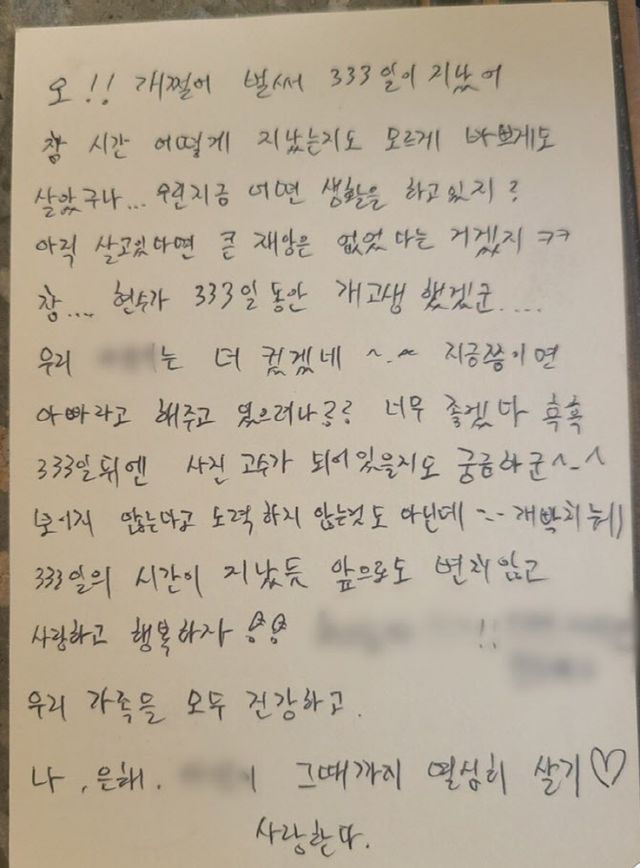 오!! 개쩔어 벌써 333일이 지났어
참 시간 어떻게 지났는지도 모르게 바쁘게도
살았구나... 우린지금 어떤 생활을 하고있지?
아직 살고있다면 큰 재앙은 없었다는 거겠지 ㅋㅋ
참.... 현수가 333일동안 개고생 했겠군....
우리 는 더 컸겠네 ^.^ 지금쯤이면
아빠라고 해주고 있으려나?? 너무 좋겠다 흑흑
333일뒤엔 사진 고수가 되어있을지도 궁금하군^-^
보이지 않는다고 노력하지 않는것도 아닌데 -.-
333일의 시간이 지났듯 앞으로도 변치않고
사랑하고 행복하자 !!
우리 가족들 모두 건강하고.
나, 은해, 그때까지 열심히 살기♡
사랑한다.